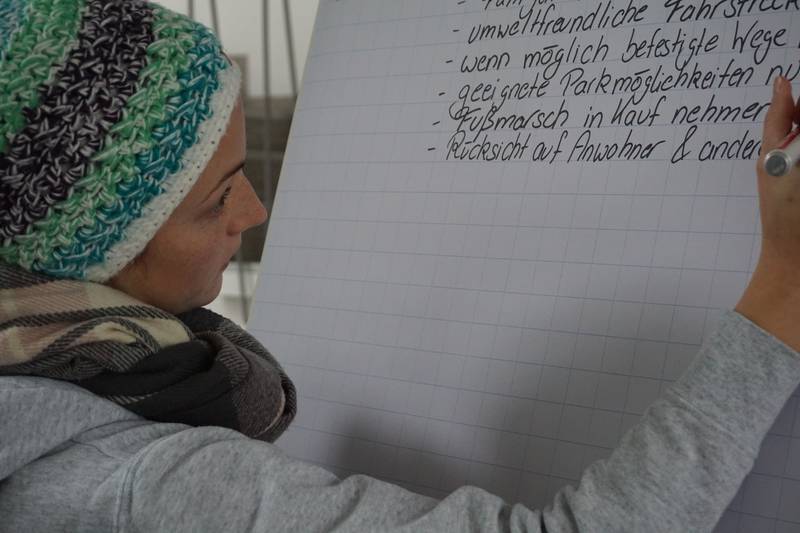 - umweltfreundliche Fahrstreck
- wenn möglich befestigte Wege
- geeignete Parkmöglichkeiten nu
- Fußmarsch in Kauf nehmen
- Rücksicht auf Anwohner & andere